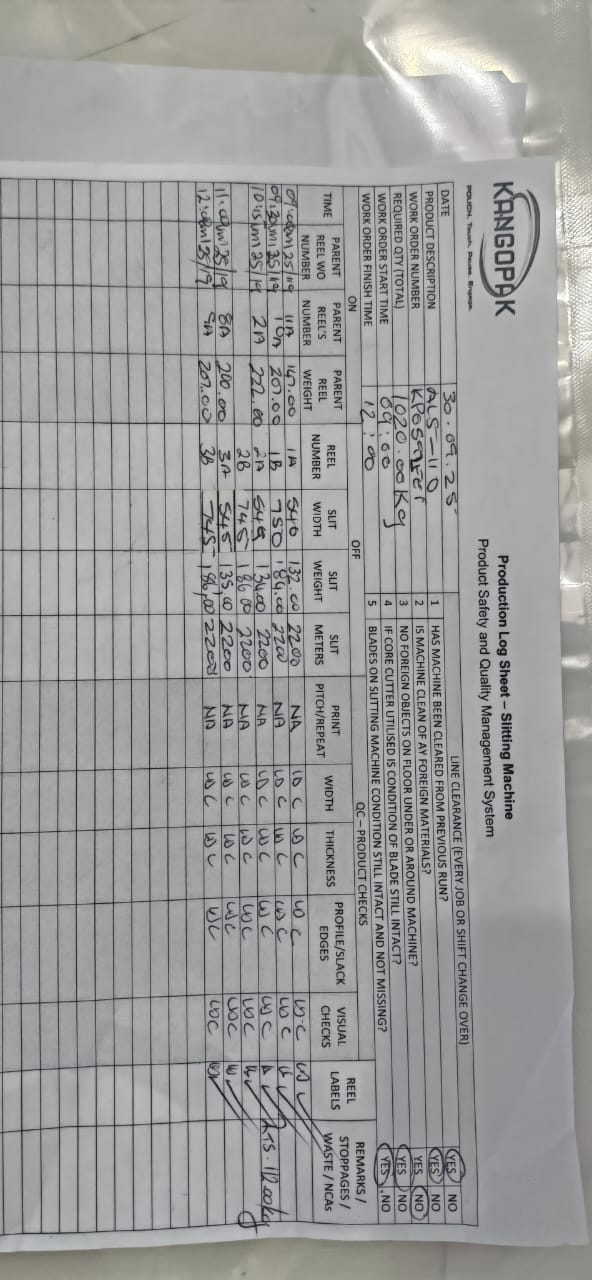 KANGOPAK
POUCH. Touch. Pause. Engage.
Production Log Sheet – Slitting Machine
Product Safety and Quality Management System
DATE 30.09.25
PRODUCT DESCRIPTION ALS-110
WORK ORDER NUMBER
REQUIRED QTY (TOTAL) 1020.00kg
WORK ORDER START TIME 09:00
WORK ORDER FINISH TIME 12:00
LINE CLEARANCE (EVERY JOB OR SHIFT CHANGE OVER)
1 HAS MACHINE BEEN CLEARED FROM PREVIOUS RUN? YES NO
2 IS MACHINE CLEAN OF AY FOREIGN MATERIALS? YES NO
3 NO FOREIGN OBJECTS ON FLOOR UNDER OR AROUND MACHINE? YES NO
4 IF CORE CUTTER UTILISED IS CONDITION OF BLADE STILL INTACT? YES NO
5 BLADES ON SLITTING MACHINE CONDITION STILL INTACT AND NOT MISSING? YES NO
ON OFF QC – PRODUCT CHECKS
TIME PARENT REEL WO NUMBER PARENT REEL'S NUMBER PARENT REEL WEIGHT REEL NUMBER SLIT WIDTH SLIT WEIGHT SLIT METERS PRINT PITCH/REPEAT WIDTH THICKNESS PROFILE/SLACK EDGES VISUAL CHECKS REEL LABELS REMARKS / STOPPAGES / WASTE / NCAs
09:00am 25/119 11A 147.00 1A 540 132.00 2200 NA WC WC WC WC
09:30am 25/119 10A 207.00 1B 750 184.00 2200 NA WC WC WC WC
10:15am 25/119 2A 222.00 2A 545 134.00 2200 NA WC WC WC WC
2B 745 186.00 2200 NA WC WC WC WC
11:00am 25/119 8A 200.00 3A 545 135.00 2200 NA WC WC WC WC
12:00am 25/119 9A 207.00 3B 745 186.00 2200 NA WC WC WC WC